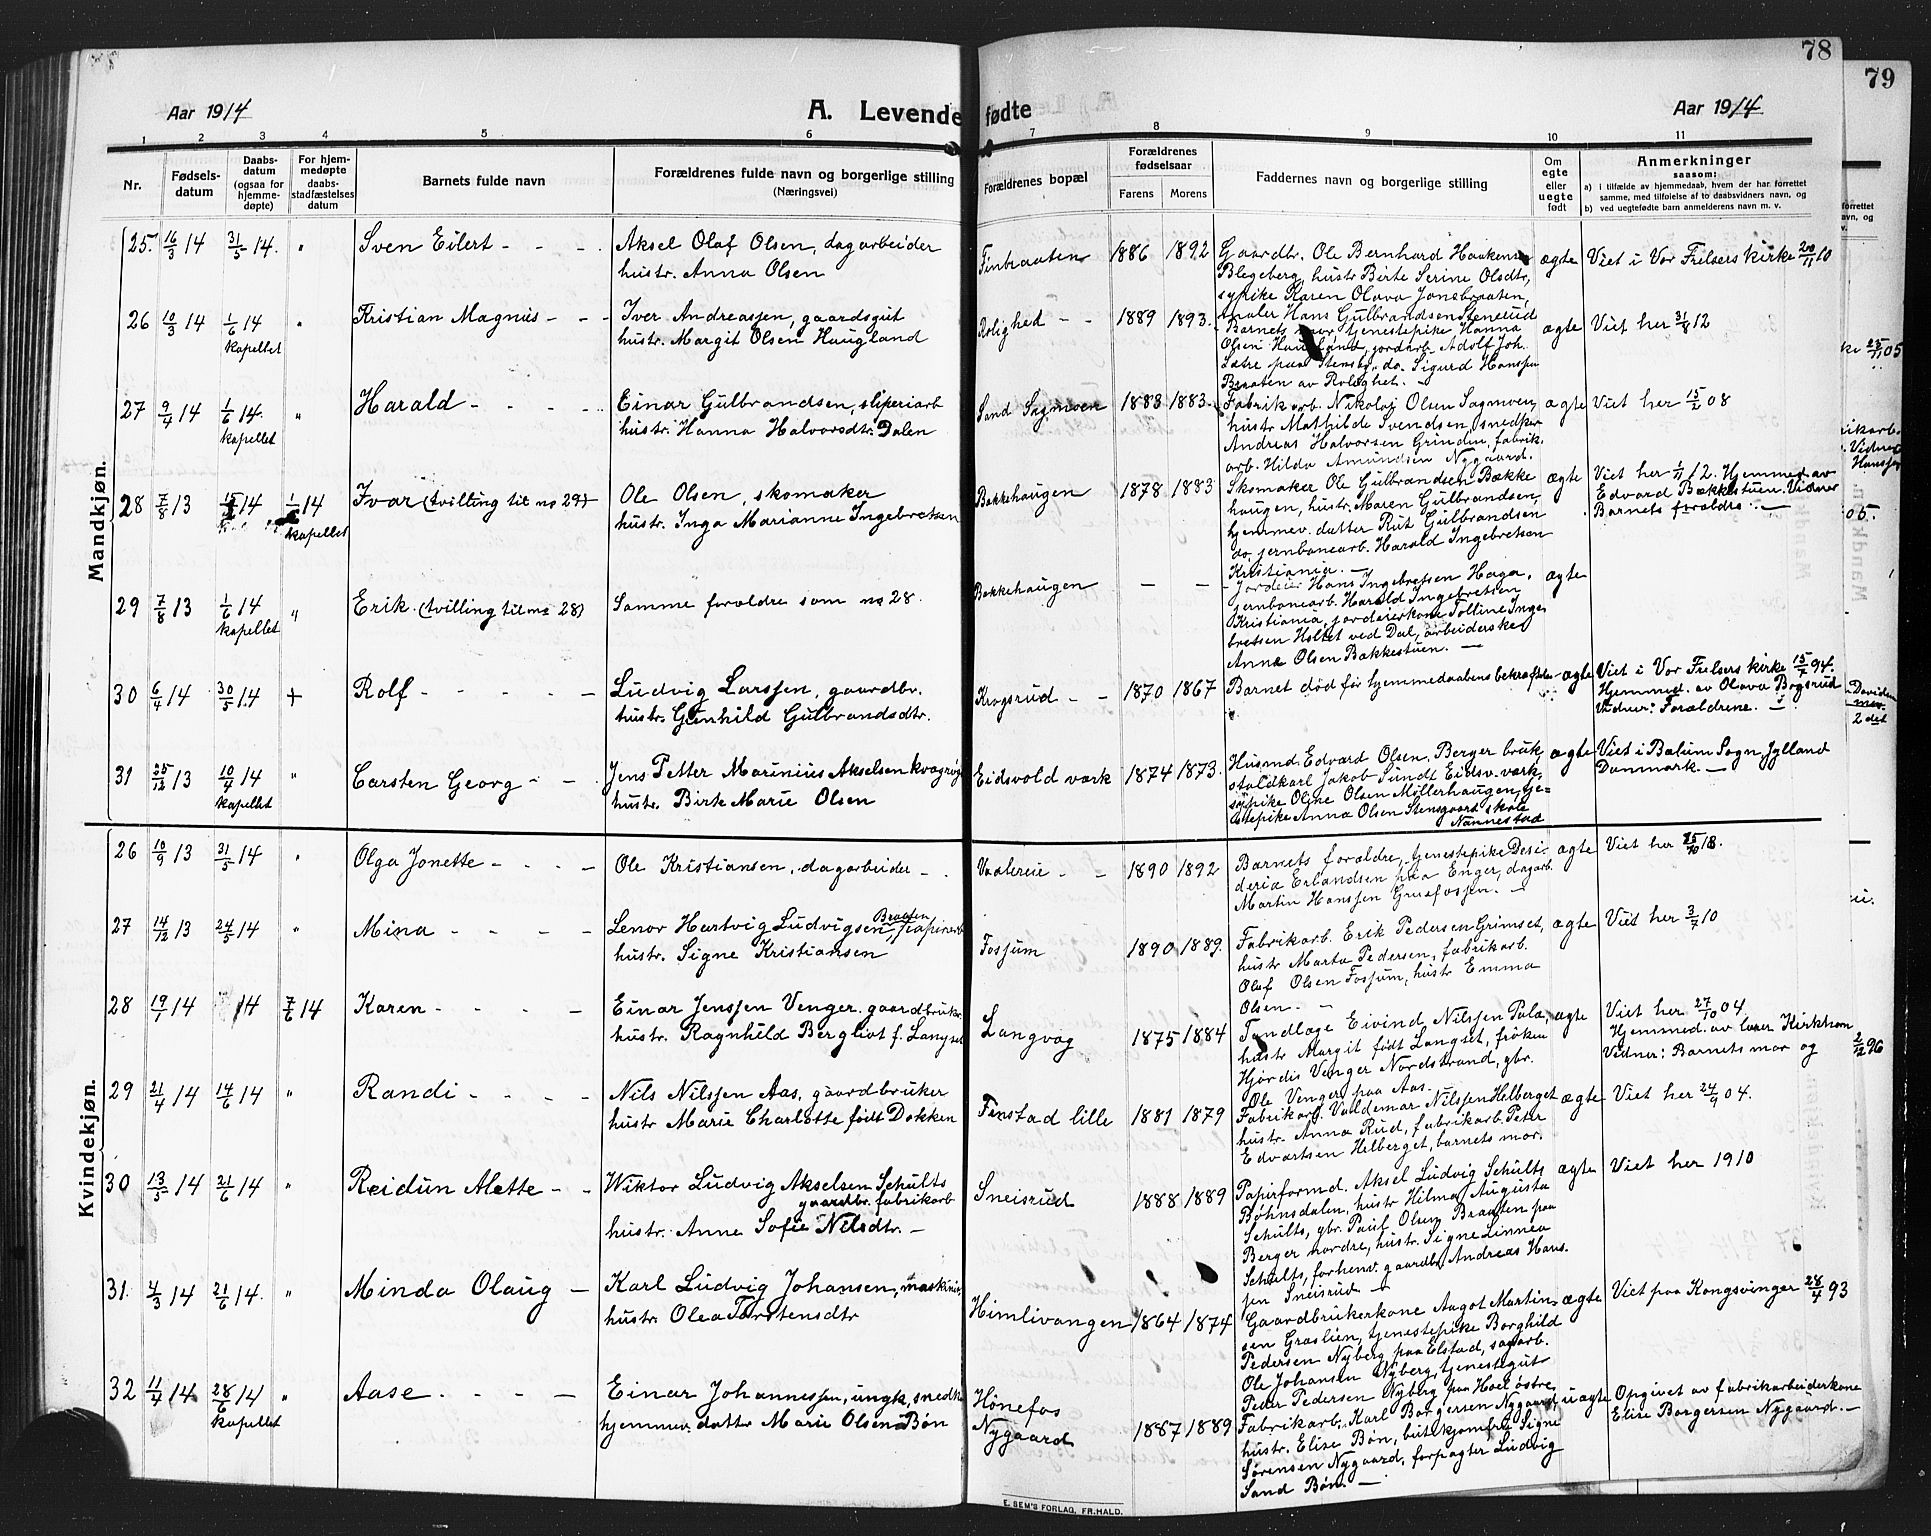 78
79
Aar 1914
A. Levende fødte
Aar 1914
1 2 3 4 5 6 7 8 9 10 11
Nr.
Fødsels-
datum
Daabs-
datum
(ogsaa for
hjemme-
døpte)
For hjem-
medøpte
daabs-
stadfæstelses
datum
Barnets fulde navn
Forældrenes fulde navn og borgerlige stilling
(Næringsvei)
Forældrenes bopæl
Forældrenes
fødselsaar
Farens Morens
Faddernes navn og borgerlige stilling
Om
egte
eller
uegte
født
Anmerkninger
saasom:
a) i tilfælde av hjemmedaab, hvem der har forrettet
samme, med tilføielse af to daabsvidners navn, og
b) ved uegtefødte barn anmelderens navn m. v.
Mandkjøn.
25. 16/3 14 31/5 14. " Sven Eilert - - -
Aksel Olaf Olsen, dagarbeider
hustr. Anna Olsen
Finbraaten 1886 1892
Gaardbr. Ole Bernhard Haakens
Blegeberg, hustr Birte Serine Olsdtr,
sypike Karen Olava Jonsbraaten,
maler Hans Gulbrandsen Stenerud
ægte Viet i Vor Frelsers kirke 20/11 10
26 10/3 14 1/6 14 kapellet " Kristian Magnus - - -
Iver Andreassen, gaardsgut
hustr. Margit Olsen Haugland
Rolighed - - 1889 1893.
Barnets mor, tjenestepike Hanna
Olsen Haugland, jordarb. Adolf Joh.
Sætre paa Stensby, do. Sigurd Hanssen
Braaten av Rolighet. -
ægte Viet her 31/8 12
27 9/4 14 1/6 14. kapellet " Harald - - - -
Einar Gulbrandsen, sliperiarb
hustr. Hanna Halvorsdtr. Dalen
Sand Sagmoen 1888 1883.
Fabrikarb. Nikolaj Olsen Sagmoen,
hustr Mathilde Svendsen, snedker
Andreas Halvorsen Grinden, fabrik.
arb. Hilda Amundsen Nygaard.
ægte Viet her 15/2 08
28 7/8 13 14 1/ 14 kapellet Ivar (tvilling til no 29)
Ole Olsen, skomaker
hustr. Inga Marianne Ingebretsen
Bakkehaugen 1878 1883
Skomaker Ole Gulbrandsen Bække
haugen, hustr. Maren Gulbrandsen,
hjemmev. datter Rut Gulbrandsen
do, jernbanearb. Harald Ingebretsen
Kristiania. -
ægte Viet her 1/11 12. Hjemmed. av
Edvard Bækkestuen. Vidner
Barnets forældre. -
29 7/8 13 1/6 14 kapellet " Erik. (tvilling til no 28)
Samme forældre som no 28.
Bakkehaugen - -
Jordeier Hans Ingebretsen Haga,
jernbanearb. Harald Ingebretsen
Kristiania, jordeierkone Tolline Inge
bretsen Holtet ved Dal, arbeiderske
Anna Olsen Bakkestuen. -
ægte
30 6/4 14 30/5 14 + Rolf - - - - -
Ludvig Larssen, gaardbr.
hustr. Gunhild Gulbrandsdtr.
Krogsrud - - 1870 1867
Barnet død før hjemmedaabens bekræftelse ægte
Viet i Vor Frelsers kirke 15/7 94.
Hjemmed. av Olava Bogsrud
Vidner: Forældrene. -
31 25/12 13 10/4 14 kapellet " Carsten Georg - -
Jens Petter Marinius Akselsen kvægrøg
hustr. Birte Marie Olsen
Eidsvold værk 1874 1873.
Husmd. Edvard Olsen, Berger bruk
staldkarl Jakob Sundt Eidsv. værk,
sypike Oline Olsen Møllerhaugen, tje=
nestepike Anna Olsen Stensgaard skole
Nannestad
ægte Viet i Bælum Sogn, Jylland
Danmark. -
Kvindekjøn.
26 10/9 13 31/5 14 " Olga Jonette - - - -
Ole Kristiansen, dagarbeider - .
Vaalereie - - 1890 1892
Barnets forældre, tjenestepike Desi-
deria Erlandsen paa Enger, dagarb.
Martin Hanssen Gruefossen. -
ægte Viet her
27 14/12 13 24/5 14 " Mina - - - -
Lenor Hartvig Ludvigsen Braaten, papirarb
hustr. Signe Kristiansen
Fossum 1890 1889.
Fabrikarb. Erik Pedersen Grimset,
hustr Marta Pedersen, fabrikarb.
Olaf Olsen Fossum, hustr Emma
Olsen. -
ægte Viet her 3/7 10
28 19/1 14 14 7/6 14 Karen - - - -
Einar Jenssen Venger. gaardbruker
hustr. Ragnhild Bergliot f. Langset
Langvag 1875 1884
Tandlæge Eivind Nilssen Tala,
hustr Margit født Langset, frøken
Hjørdis Venger Nordstrand, gbr.
Ole Venger paa Aas.
ægte Viet her 27/10 04
Hjemmed. av lærer Kirkhom
Vidner: Barnets mor og
29 21/4 14 14/6 14 " Randi - - - -
Nils Nilssen Aas, gaardbruker
hustr Marie Charlotte født Dokken
Finstad lille 1881 1879
Fabrikarb. Valdemar Nilssen Helberget
hustr. Anna Rud, fabrikarb. Peter
Edvartsen Helberget, barnets mor.
ægte Viet her 24/9 04.
30 13/5 14 21/6 14 " Reidun Alette - -
Wiktor Ludvig Akselsen Schults
gaardbr. fabrikarb
hustr. Anne Sofie Nilsdtr. -
Sneisrud 1888 1889
Papirformd. Aksel Ludvig Schults
Bøhnsdalen, hustr Hilma Augusta
Schults, gbr. Paul Olsen Braaten paa
Berger nordre, hustr. Signe Linnea
Schults, forhenv. gaardbr. Andreas Hans.
sen Sneisrud -
ægte Viet her 1910
31. 4/3 14 21/6 14. " Minda Olaug -
Karl Ludvig Johansen, maskinis
hustr. Olea Torstensdtr
Himlivangen 1864 1874
Gaardbrukerkone Aagot Martin
sen Graslien, tjenestepike Borghild
Pedersen Nyberg paa Elstad, sagarb.
Ole Johansen Nyberg, tjenestegut
Peder Pedersen Nyberg paa Hoel østre
ægte Viet paa Kongsvinger 28/4 93
32 11/4 14 28/6 14 kapellet " Aase - - - -
Einar Johannessen, ungk, snedk
hjemmev. datter Marie Olsen Bøn
Hønefos
Nygaard
1887 1889
Fabrikarb. Karl Borgersen Nygaard,
hustr. Elise Bøn, butikjomfru Signe
Sørensen Nygaard, forpagter Ludvig
Sand Bøn. -
uægte Opgivet av fabrikarbeiderkone
Elise Borgersen Nygaard. -
E. SEM'S FORLAG, FR.HALD.